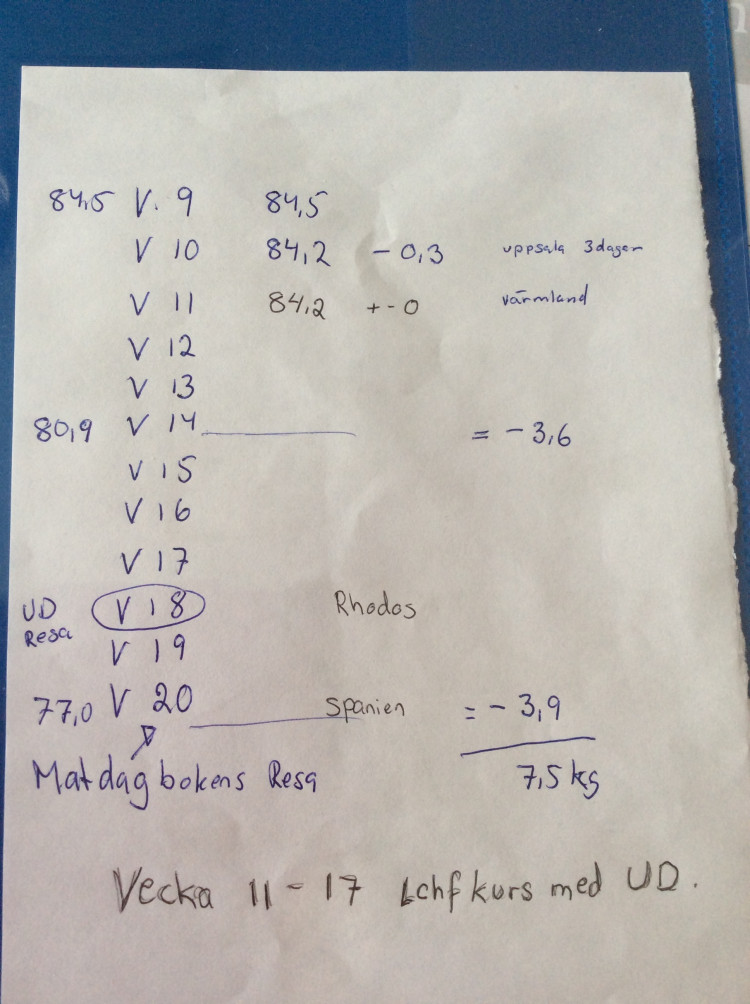 84,5 V. 9 84,5
V 10 84,2 - 0,3 uppsala 3dagar
V 11 84,2 +-0 värmland
V 12
V 13
80,9 V 14 = - 3,6
V 15
V 16
V 17
UD Resa V 18 Rhodos
V 19
77,0 V 20 Spanien = - 3,9
7,5 kg
Matdagbokens Resa
Vecka 11 - 17 Lchf kurs med UD.